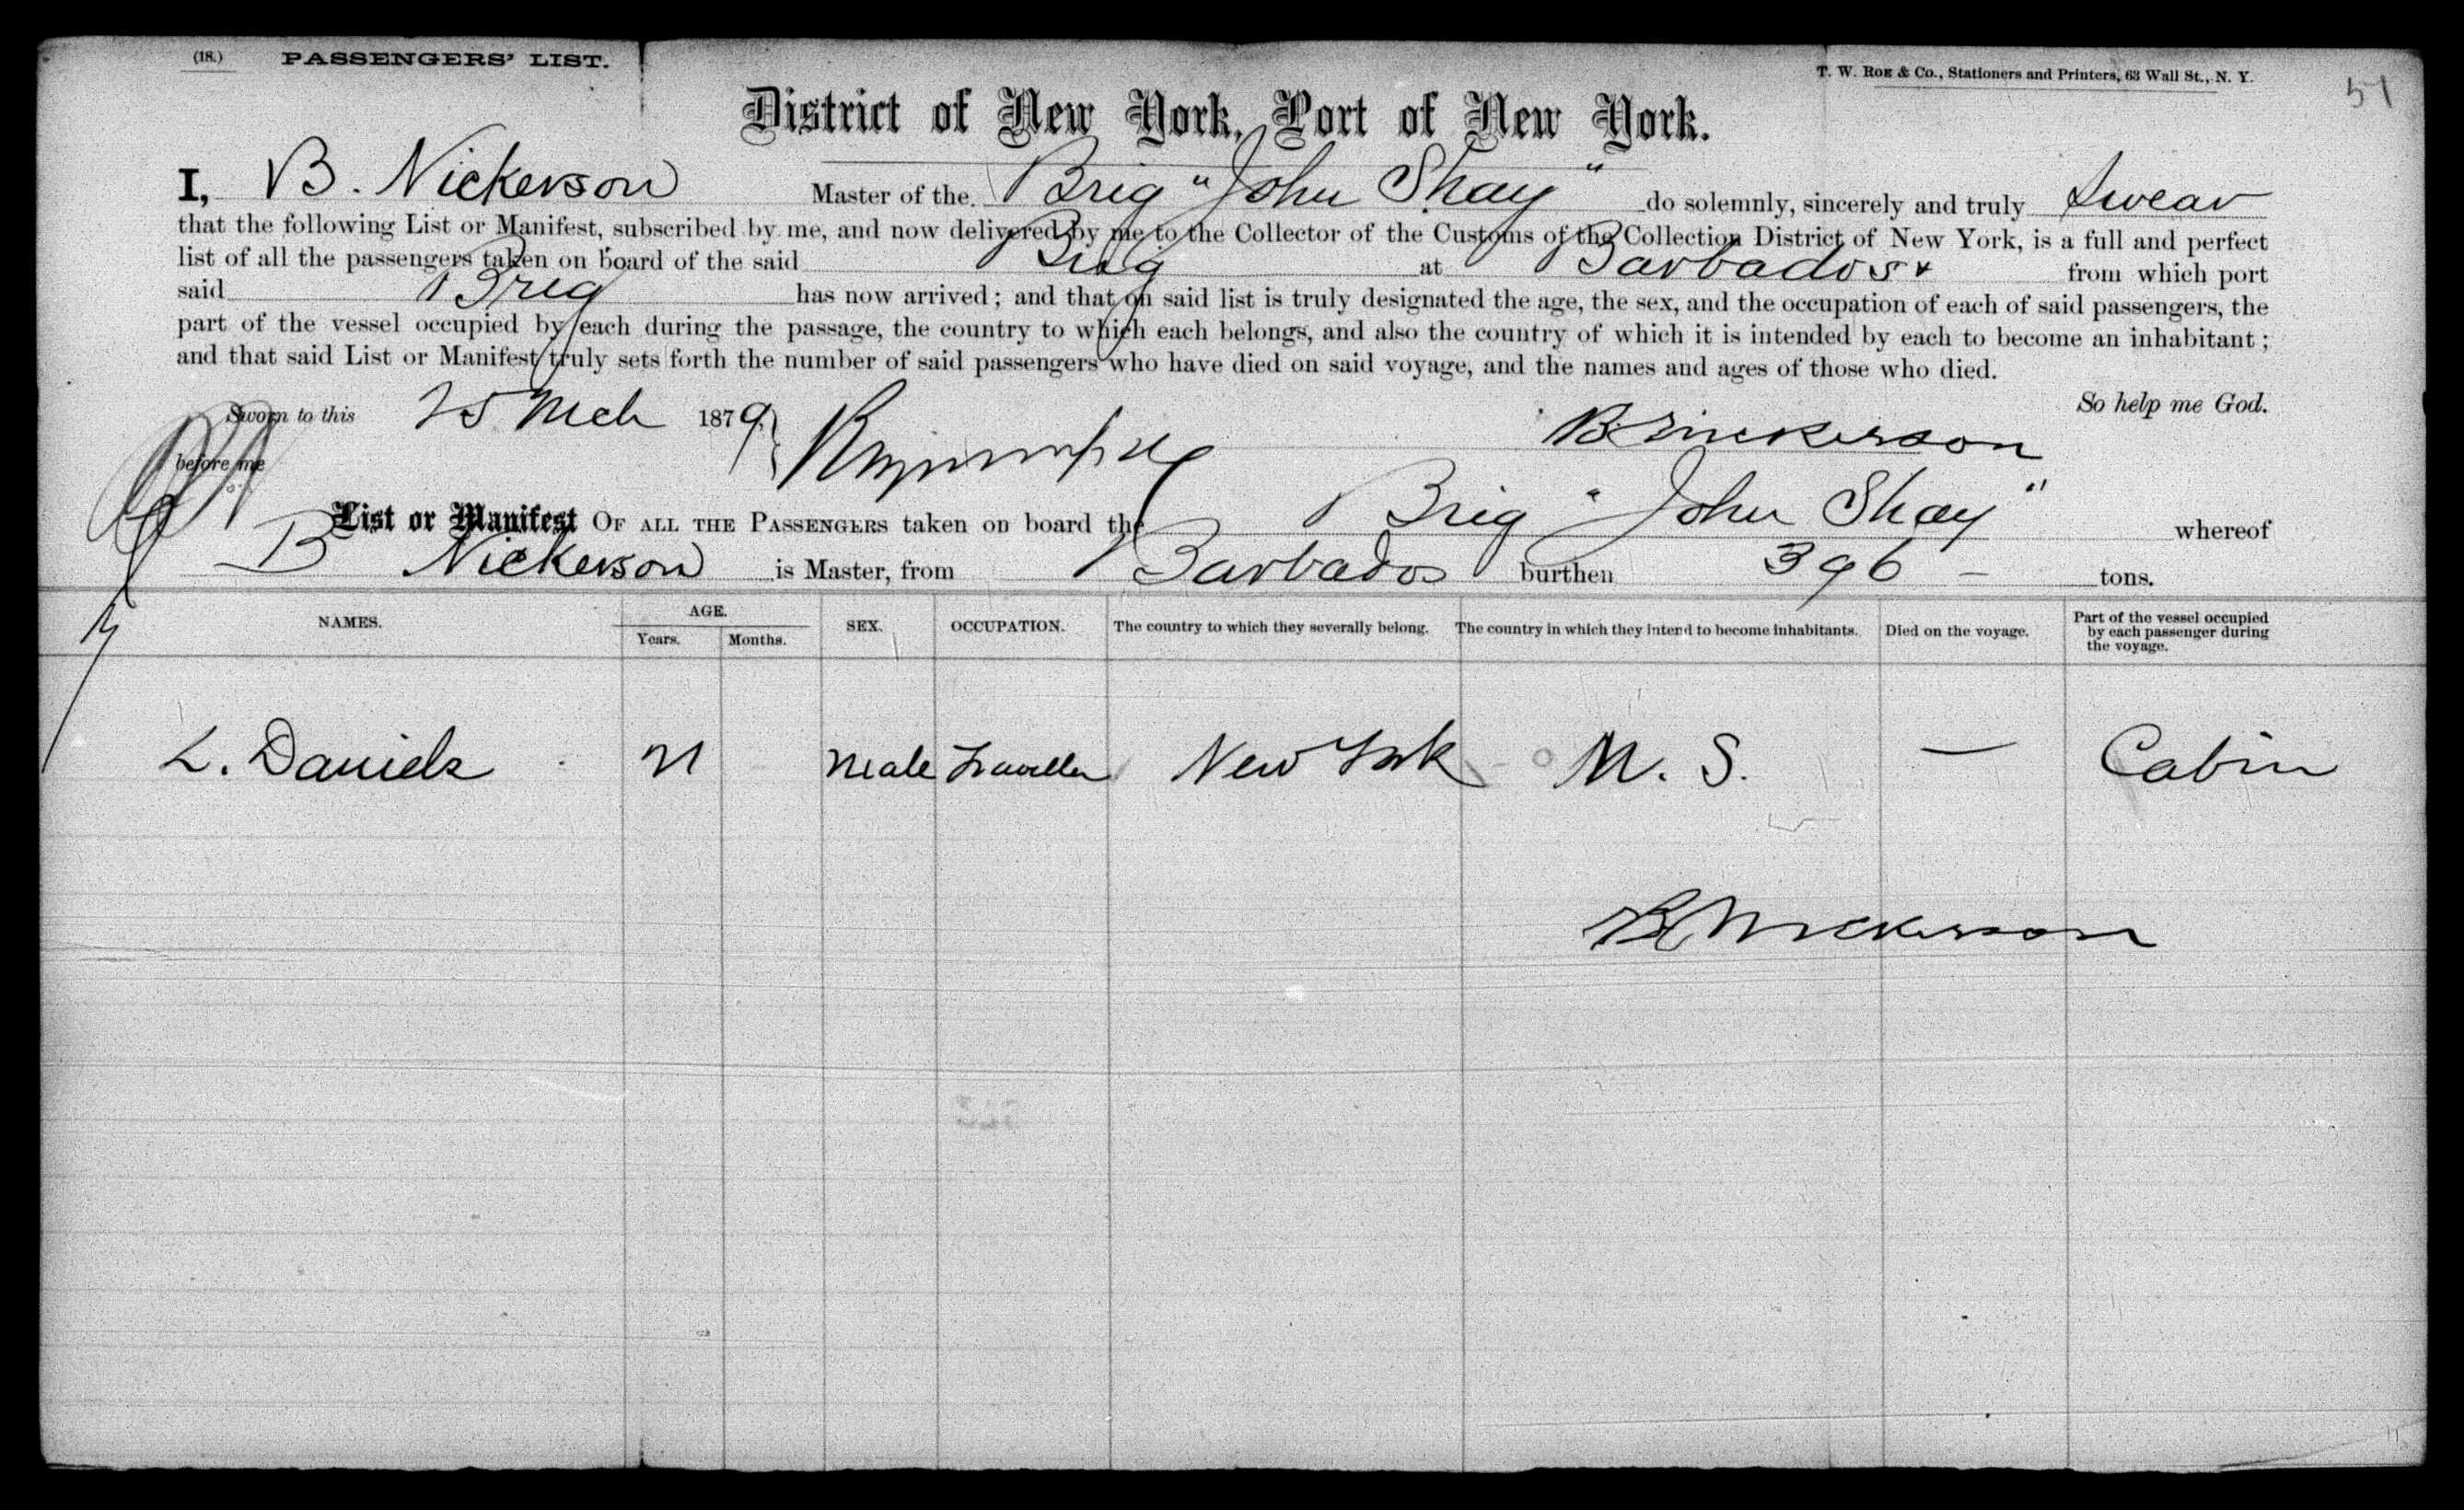 (18.) PASSENGERS' LIST.
T. W. ROE & Co., Stationers and Printers, 63 Wall St., N. Y.
51
District of New York, Port of New York.
I, B. Nickerson Master of the Brig "John Shay" do solemnly, sincerely and truly Swear
that the following List or Manifest, subscribed by me, and now delivered by me to the Collector of the Customs of the Collection District of New York, is a full and perfect
list of all the passengers taken on board of the said Brig at Barbados from which port
said Brig has now arrived; and that on said list is truly designated the age, the sex, and the occupation of each of said passengers, the
part of the vessel occupied by each during the passage, the country to which each belongs, and also the country of which it is intended by each to become an inhabitant;
and that said List or Manifest truly sets forth the number of said passengers who have died on said voyage, and the names and ages of those who died.
Sworn to this 25 Mch 1879 So help me God.
before me B Nickerson
List or Manifest OF ALL THE PASSENGERS taken on board the Brig "John Shay" whereof
B Nickerson is Master, from Barbados burthen 396 tons.
NAMES. AGE. Years. Months. SEX. OCCUPATION. The country to which they severally belong. The country in which they intend to become inhabitants. Died on the voyage. Part of the vessel occupied by each passenger during the voyage.
L. Daniels Male Traveller New York — Cabin
B Nickerson